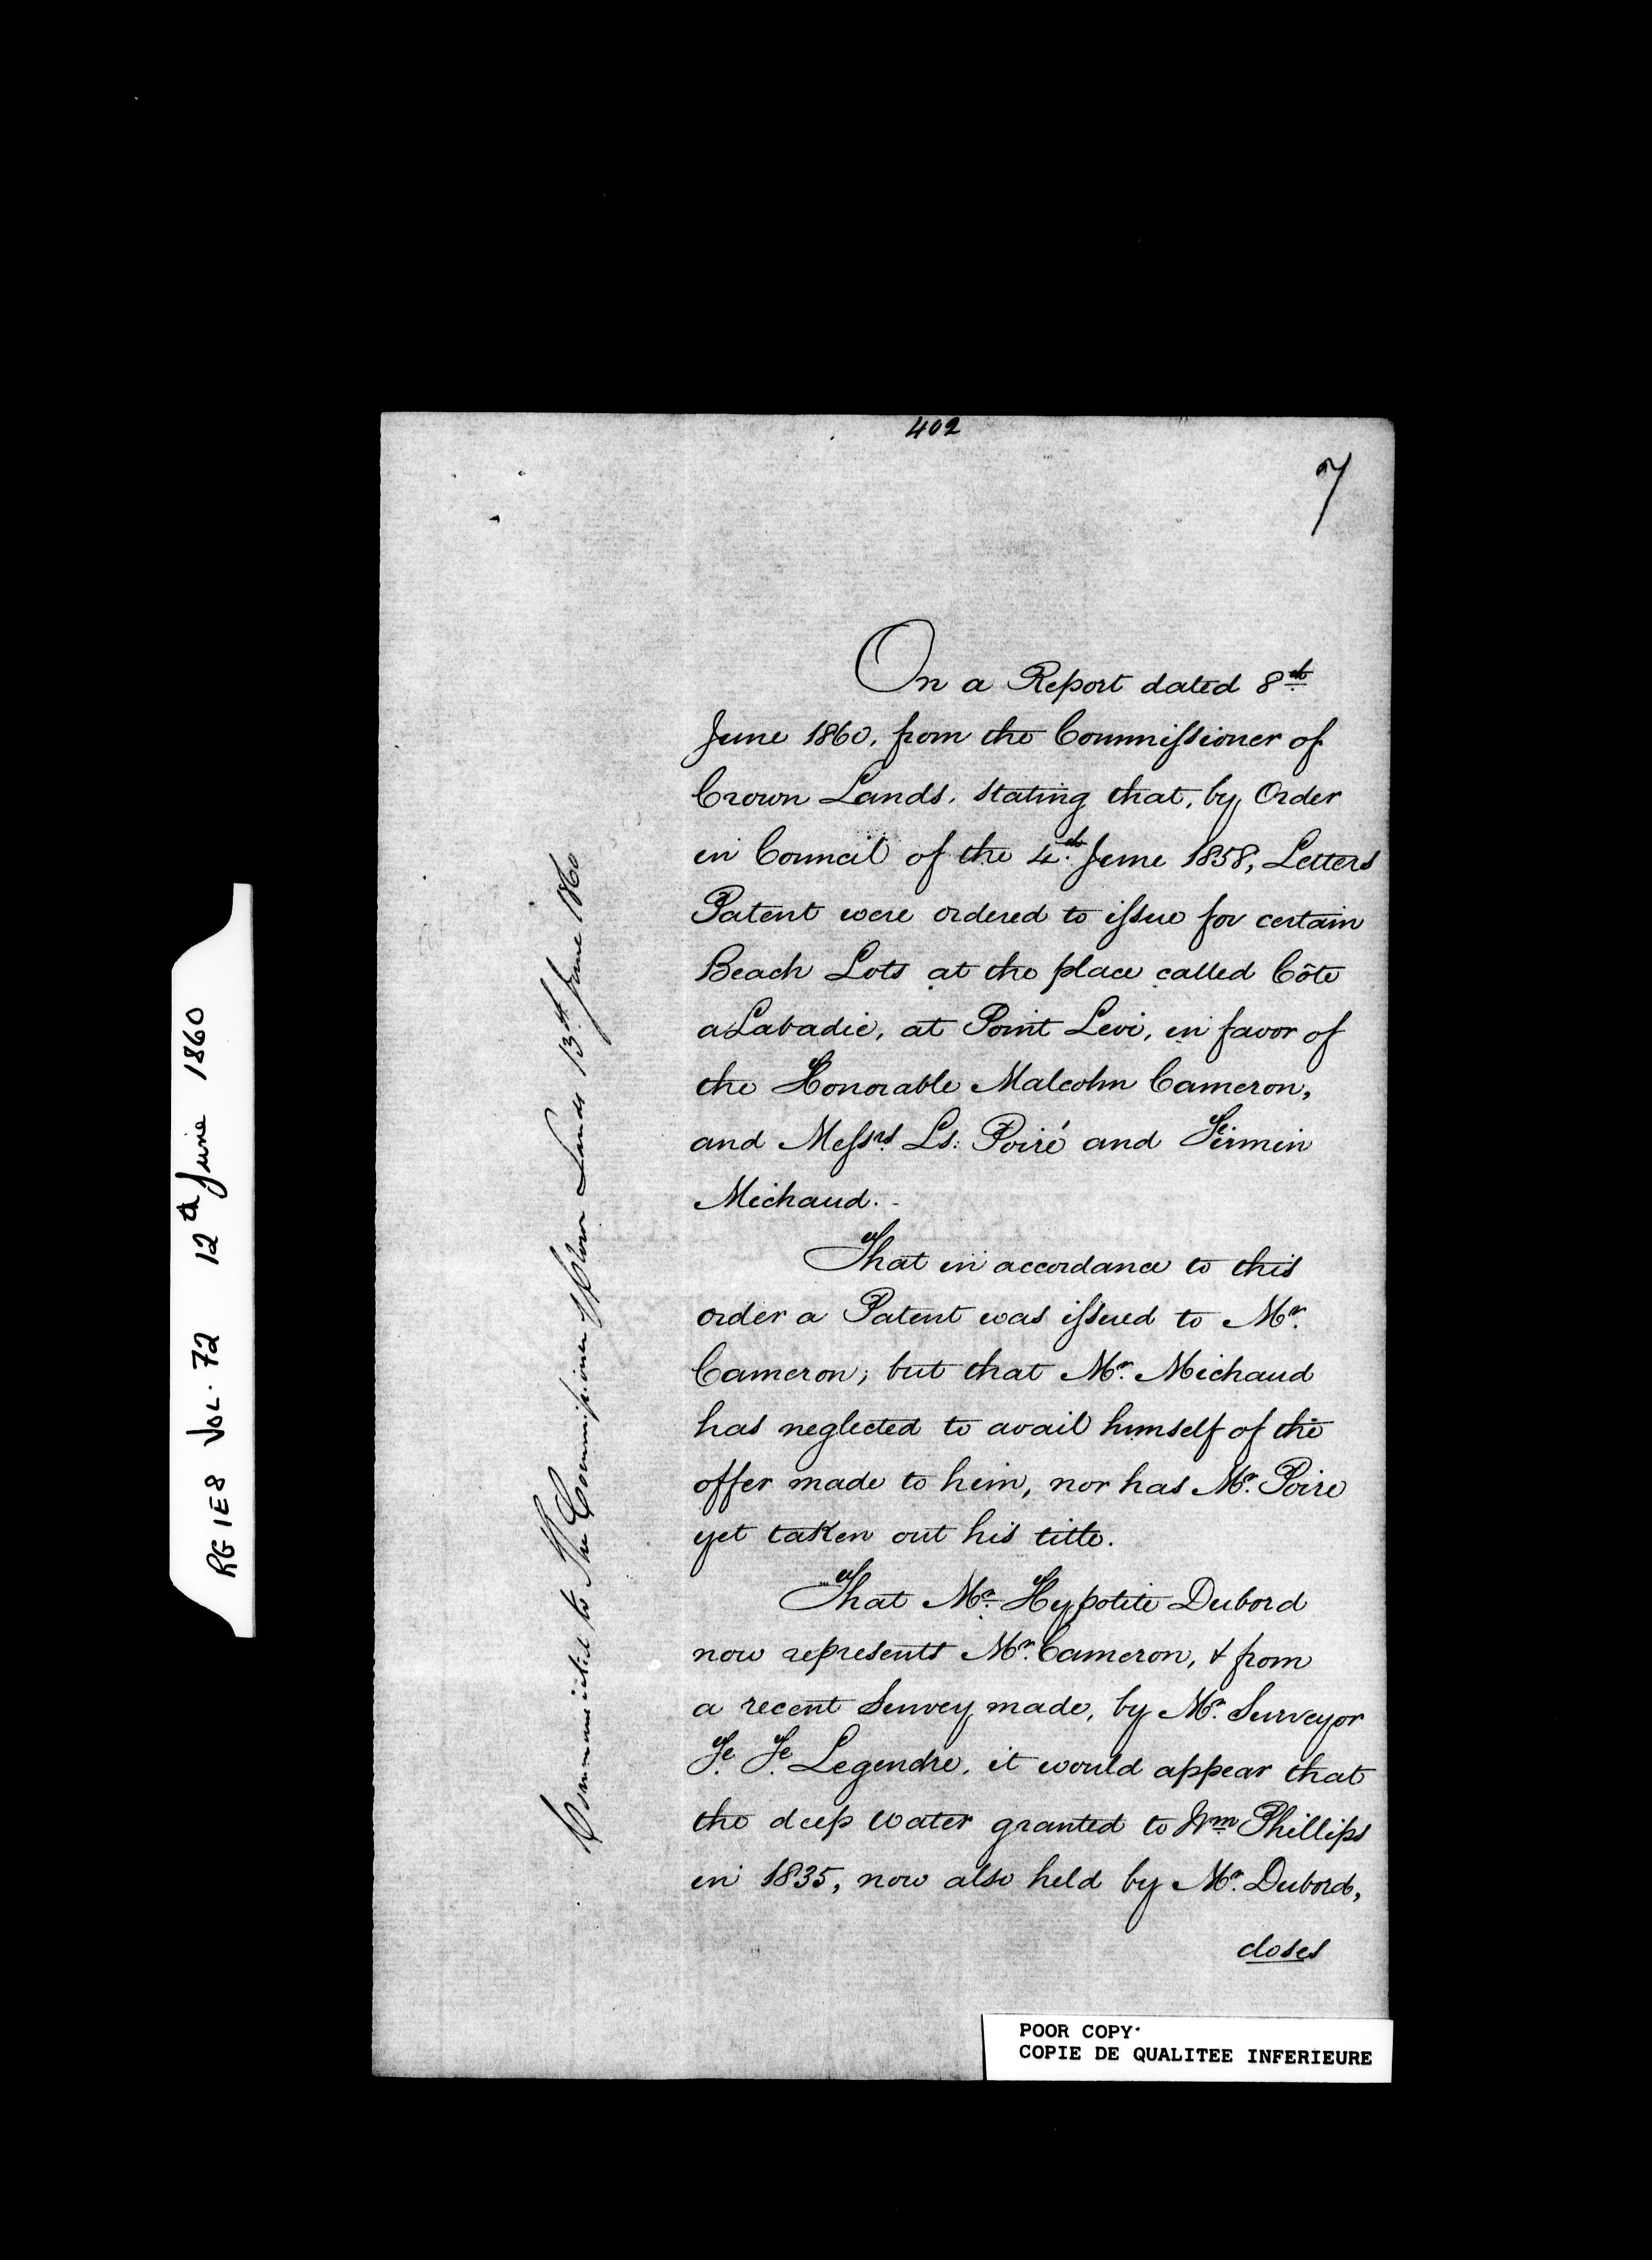 402
7
On a Report dated 8th
June 1860, from the Commissioner of
Crown Lands, stating that, by Order
in Council of the 4th June 1858, Letters
Patent were ordered to issue for certain
Beach Lots at the place called Côte
a Labadie, at Point Levi, in favor of
the Honorable Malcolm Cameron,
and Messrs Ls: Poiré and Firmin
Michaud.-
That in accordance to this
order a Patent was issued to Mr.
Cameron; but that Mr. Michaud
has neglected to avail himself of the
offer made to him, nor has Mr. Poire
yet taken out his title.
That Mr. Hypotite Dubord
now represents Mr. Cameron, & from
a recent Survey made, by Mr. Surveyor
F. F. Legendre, it would appear that
the deep water granted to Wm Phillips
in 1835, now also held by Mr. Dubord,
closes
Communicated to The Commissioner of Crown Lands 13th June 1860
RG 1E8 VOL. 72 12th June 1860
POOR COPY
COPIE DE QUALITEE INFERIEURE